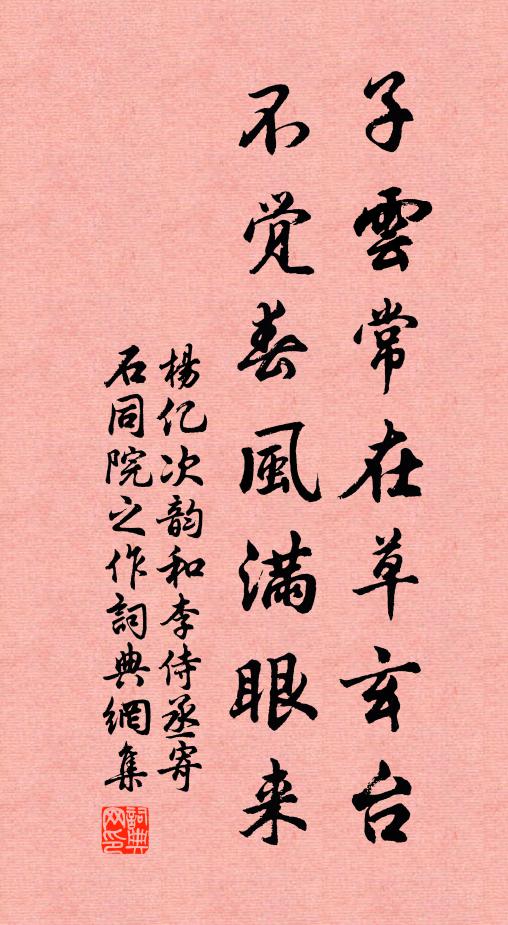 子雲常在草玄台
不觉春風滿眼来
楊亿次韵和李侍丞寄
石同院之作詞典網集
詞典网印